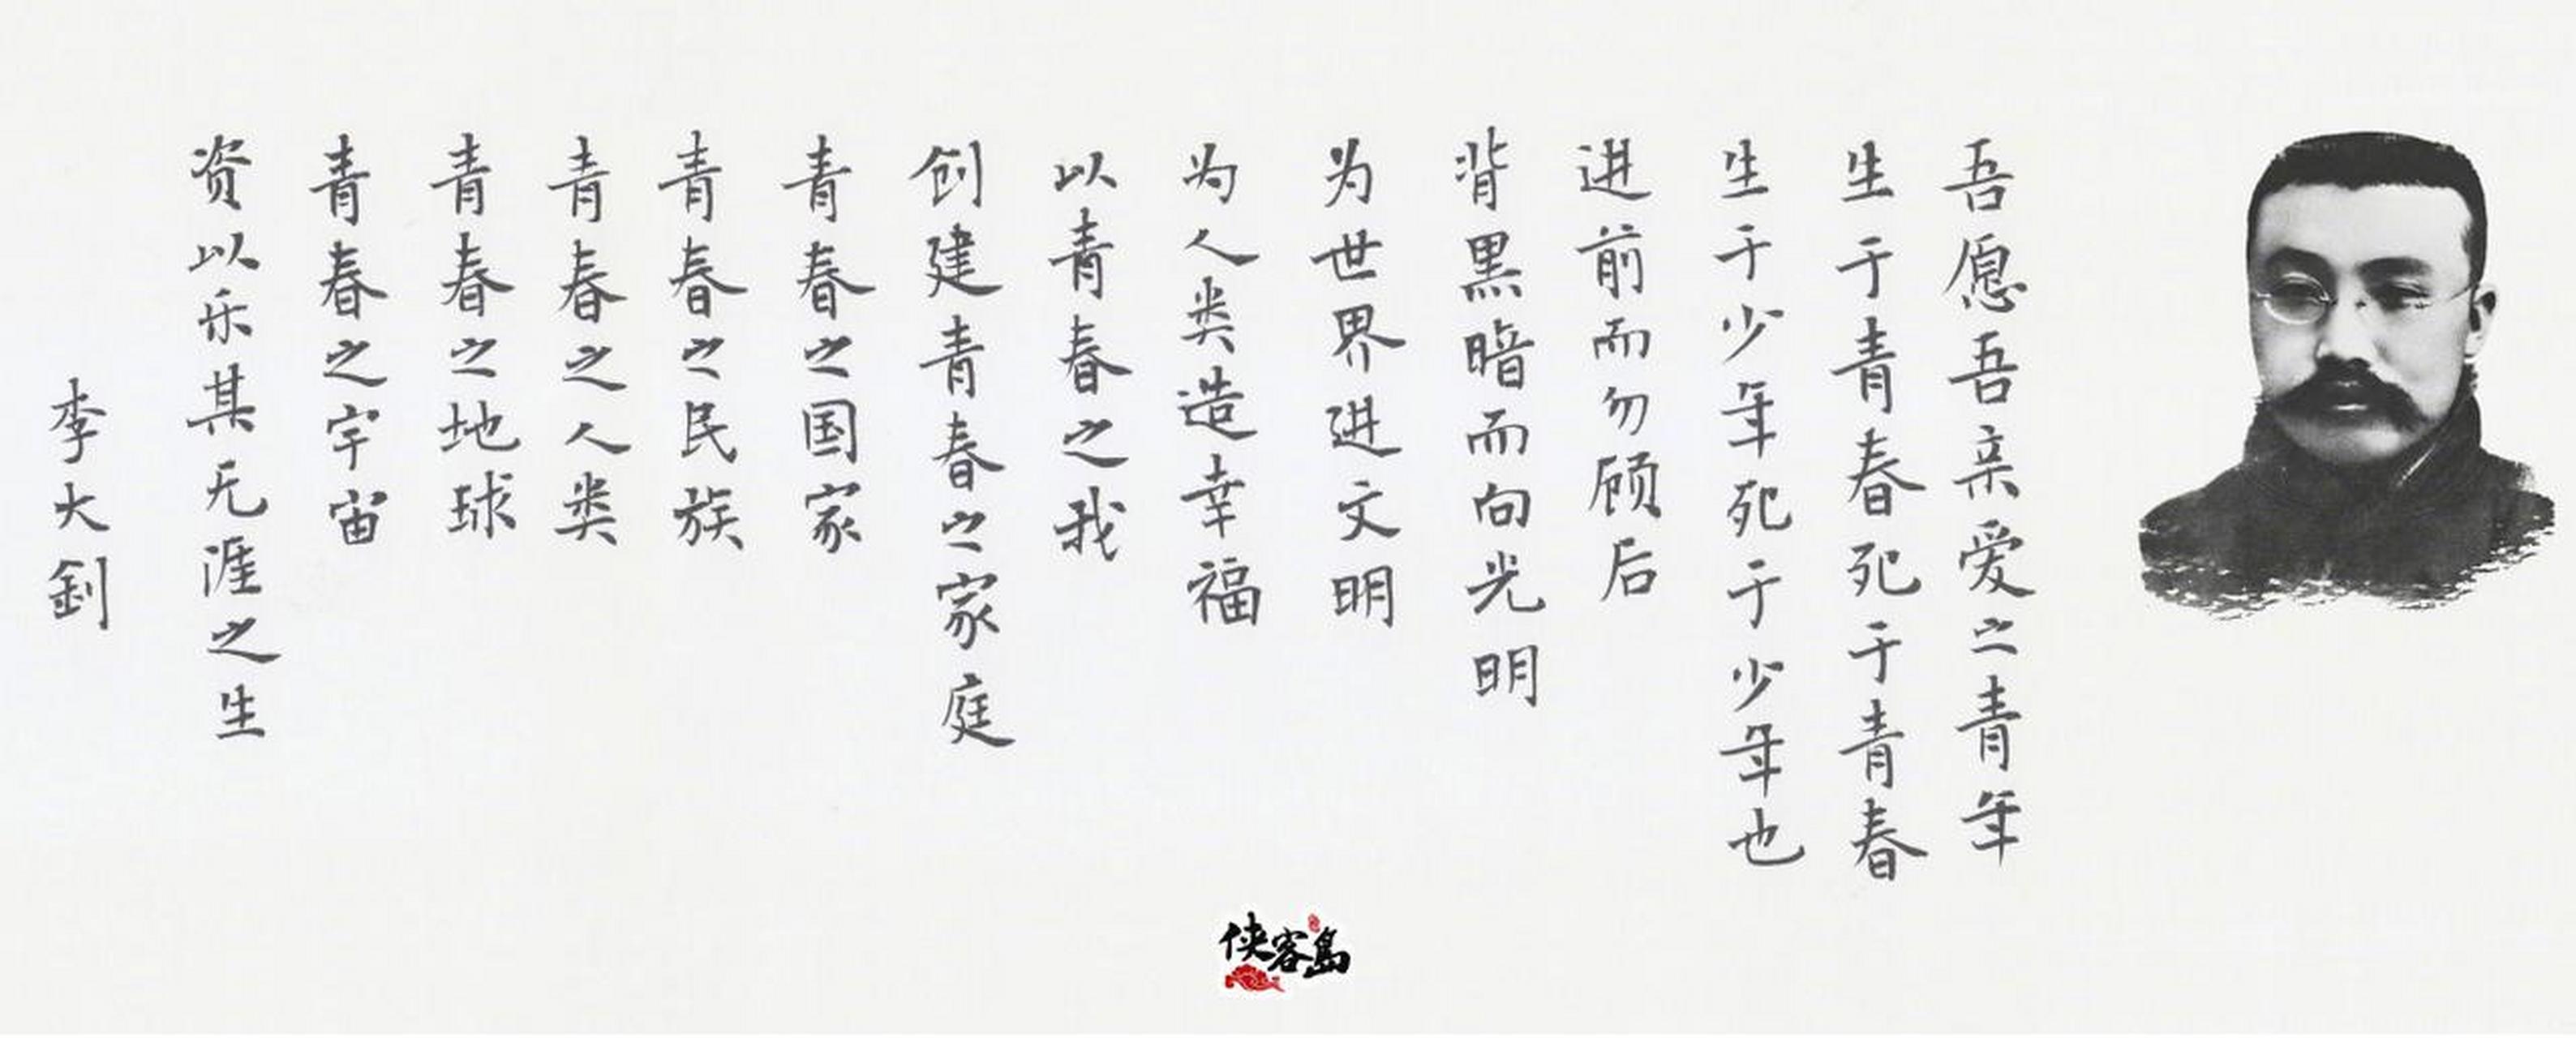 吾愿吾亲爱之青年
生于青春死于青春
生于少年死于少年也
进前而勿顾后
背黑暗而向光明
为世界进文明
为人类造幸福
以青春之我
创建青春之家庭
青春之国家
青春之民族
青春之人类
青春之地球
青春之宇宙
资以乐其无涯之生
李大钊
侠客島